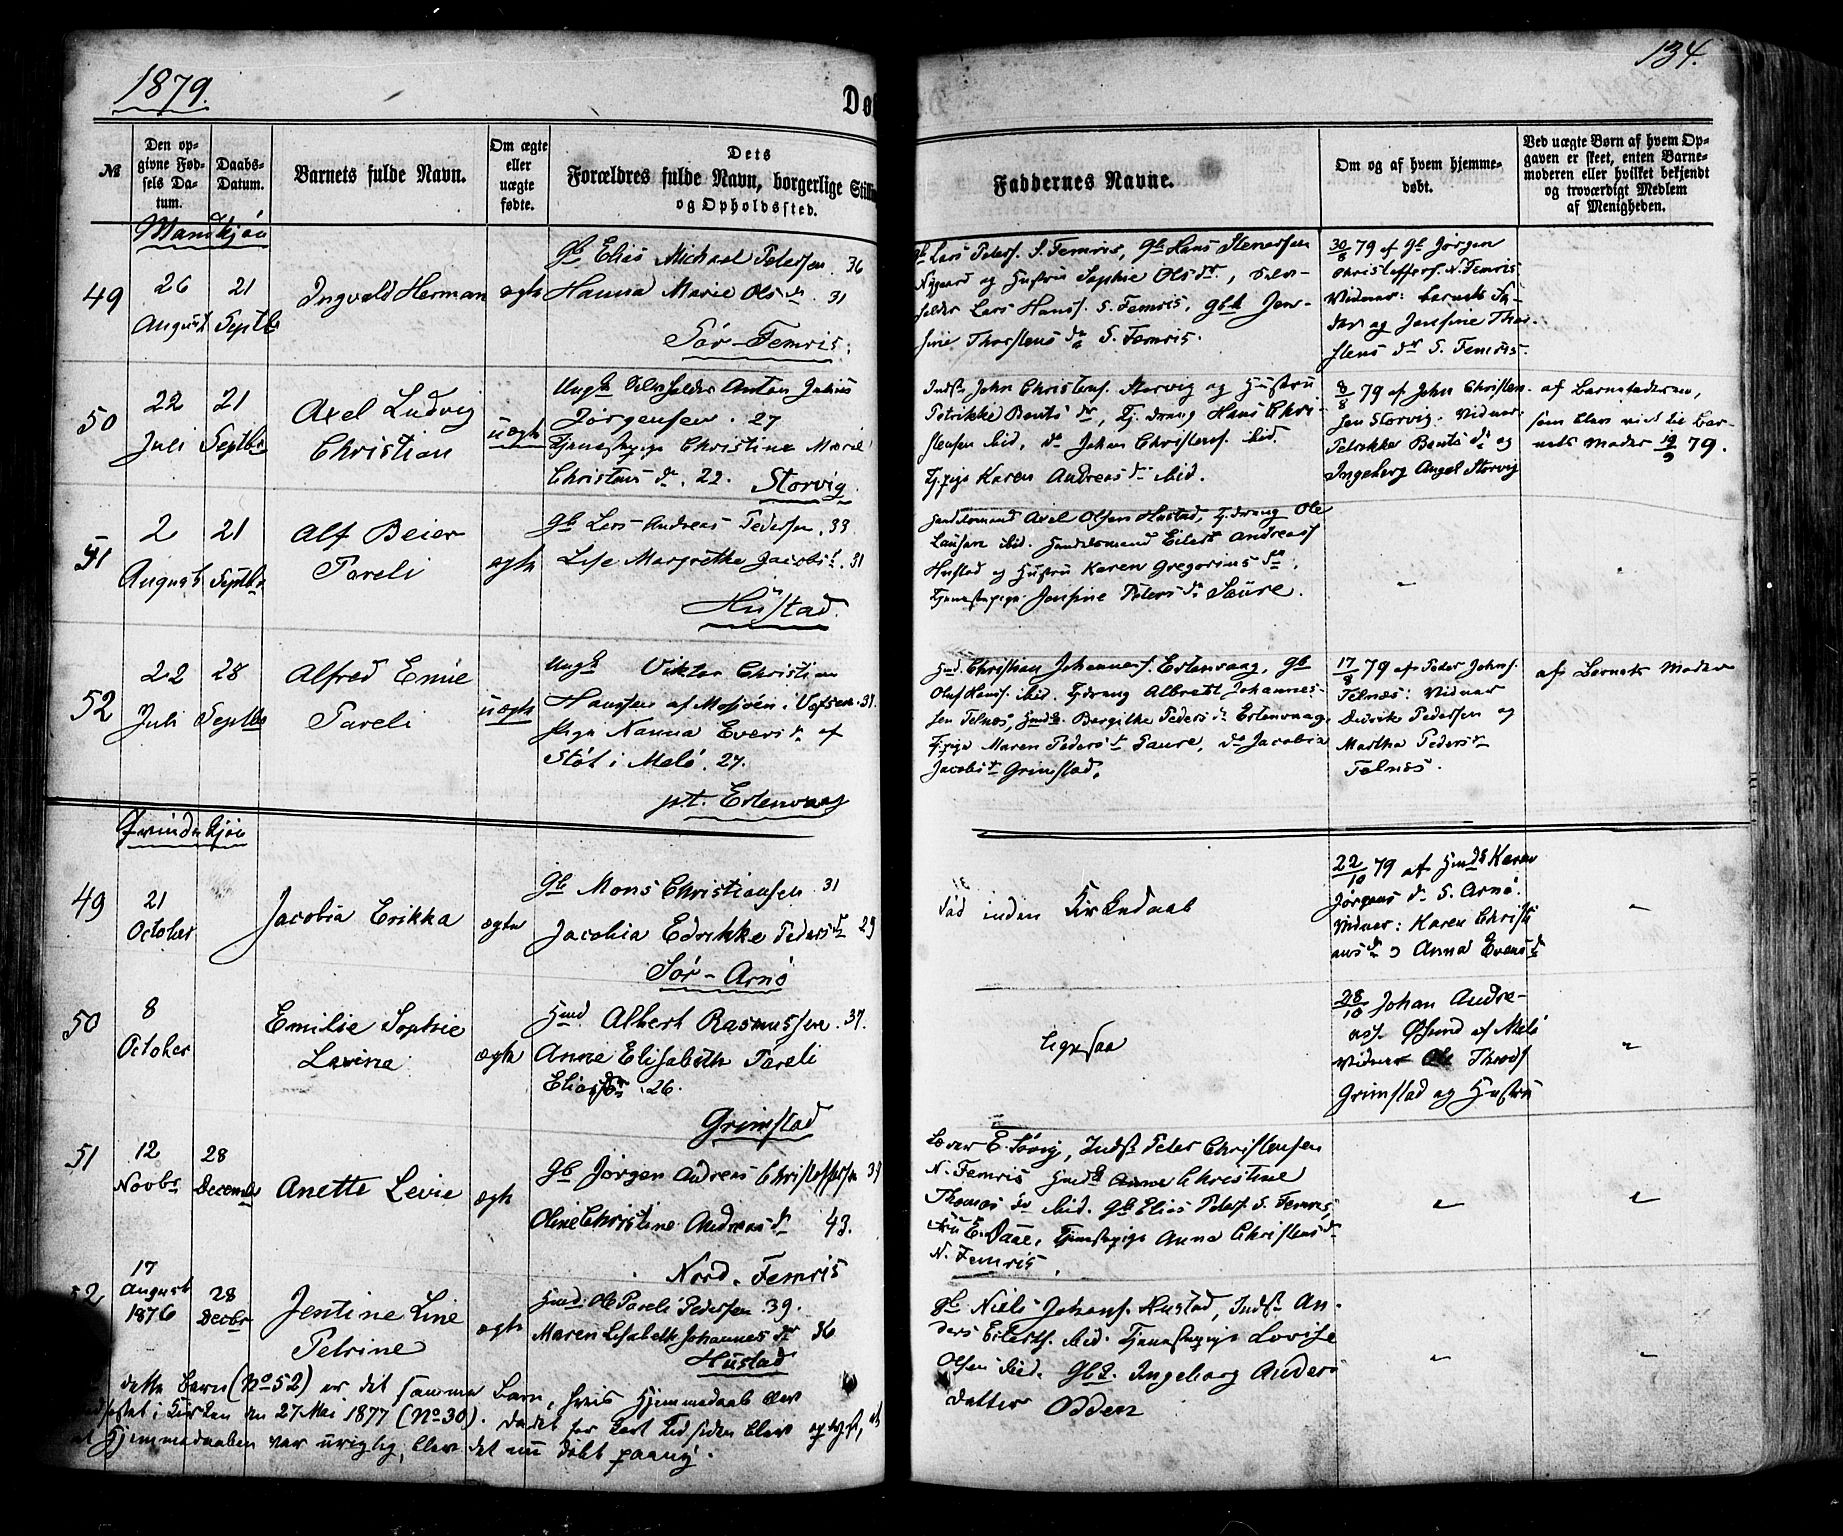 1879.
134.
Dø
№
Den op-
givne Fød-
sels Da-
tum.
Daabs-
Datum.
Barnets fulde Navn.
Om ægte
eller
uægte
fødte.
Dets
Forældres fulde Navn, borgerlige Still
og Opholdssted.
Faddernes Navne.
Om og af hvem hjemme-
døbt.
Ved uægte Børn af hvem Op-
gaven er skeet, enten Barne-
moderen eller hvilket bekjendt
og troværdigt Medlem
af Menigheden.
Mandkjøn
49
26
August
21
Septbr
Ingvald Herman
ægte
Gb Elias Michael Petersen . 36
Hanna Marie Olsdr . 31
Sør-Femris.
Gb Lars Peters. S. Femris, Gb Hans Stenersen
Nygaard og Hustru Sophie Olsdr,
Lars Hans. S. Femris, Gbk Jen-
sine Thorstensdr S. Femris.
30/8 79 af Gb Jørgen
Christoffers. N. Femris
Vidner: Barnets Fa-
der og Jensine Thor-
stensdr S. Femris.
50
22
Juli
21
Septbr
Axel Ludvig
Christian
uægte
Ungk Selvfolder Anton Julius
Jørgensen . 27
Tjenestepige Christine Marie
Christensdr . 22. Storvig
Inds. John Christens. Storvig og Hustru
Petrikke Bentsdr, Tj.dreng Hans Chri-
stensen ibid, do Johan Christens. ibid.
Tj.pige Karen Andreasdr ibid.
8/8 79 af John Christen-
sen Storvig. Vidner
Petrikke Bentsdr og
Ingeborg Angel Storvig
af Barnefaderen,
som blev viet til Bar-
nets Moder 19/9 79.
51
2
August
21
Septbr
Alf Beier
Pareli
ægte
Gb Lars Andreas Pedersen . 33
Lise Margrethe Jacobsdr . 31
Hustad
Handelsmand Axel Olsen Hustad, Tj.dreng Ole
Lausen ibid. Handelsmand Eilert Andreass
Hustad og Hustru Karen Gregoriusdr,
Tjenestepige Jensine Petersdr Saure.
"
"
52
22
Juli
28
Septbr
Alfred Emil
Pareli
uægte
Ungk Viktor Christian
Hansen af Mosjøen i Vefsen . 31.
Pige Nanna Eversdr af
Støt i Melø . 27.
pt. Ertenvaag
Hmd. Christian Johannes. Ertenvaag, Gb
Oluf Hans. ibid. Tj.dreng Albrett Johannes-
sen Telnæs, Hmdk. Bergithe Pedersdr Ertenvaag,
Tj.pige Maren Pedersdr Saure, do Jacobia
Jacobsdr Grimstad.
17/8 79 af Peder Johns.
Telnæs: Vidner
Didrik Pedersen og
Martha Pedersdr
Telnæs.
af Barnets Moder
Qvindekjøn
49
21
October
Jacobia Erikka
ægte
Gb Mons Christiansen . 31
Jacobia Edrikke Pedersdr 29
Sør-Arnø
Død inden Kirkedaab
22/10 79 af Hmdk Karen
Jørgensdr S. Arnø.
Vidner: Karen Christi-
ansdr & Anna Evensdr
"
50
8
October
Emilie Sophie
Lavina
ægte
Hmd. Albert Rasmussen . 37.
Anne Elisabeth Pareli
Eliasdr . 26.
Grimstad
ligesaa
28/10 Johan Andre-
as. Øsund af Melø
Vidner Ole Thods
Grimstad og Hustru
"
51
12
Novbr
28
December
Anette Levie
ægte
Gb Jørgen Andreas Christoffersen 39
Oline Christine Andreasdr 43.
Nord-Femris
Lærer E. Sørøy, Inds. Peter Christensen
N. Femris Hmdk Anne Christine
Thomasdr ibid. Gb Elias Peders. S. Femris,
Fru E. Daae, Tjenestepige Anna Christensdr
N. Femris.
"
"
52
17
August
1876
28
Decbr
Jentine Line
Petrine
ægte
Hmd: Ole Pareli Pedersen . 39.
Maren Lisabeth Johannesdr 36
Hustad
Gb Niels Johans. Hustad, Inds. An-
ders Eilerts. ibid. Tjenestepige Lovise
Olsen ibid. Gbk. Ingeborg Anders
datter Odden
"
"
dette Barn (No 52) er det samme Barn, hvis Hjemmedaab blev
stadfæstet i Kirken den 27 Mai 1877 (No 30). Da det for kort Tid siden blev oplyst, at
at Hjemmedaaben var urigtig, blev det nu døbt paany.